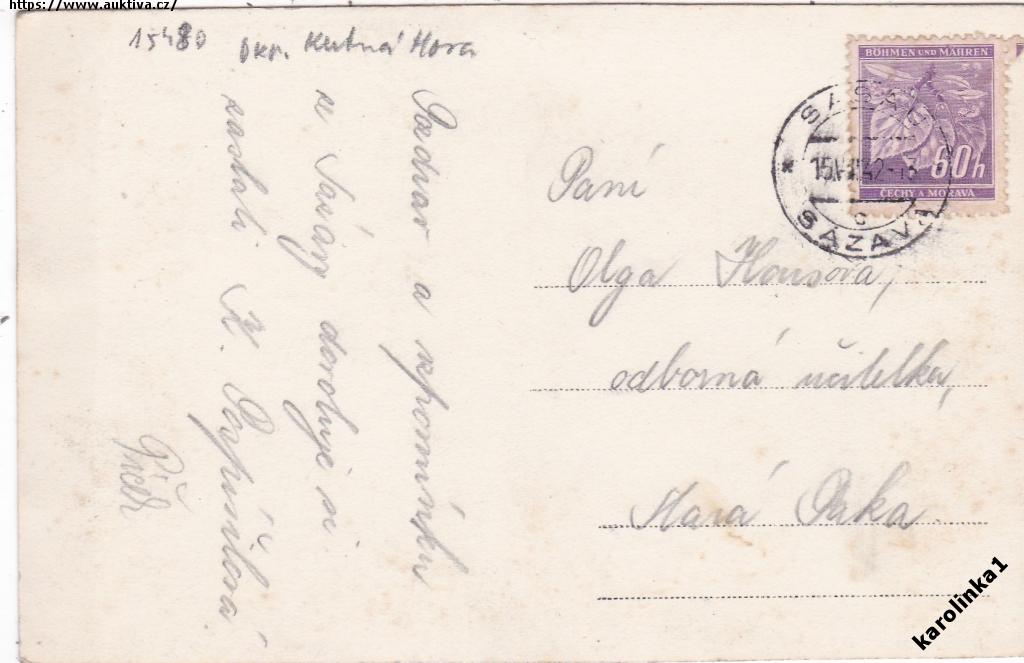 https://www.auktiva.cz/
15480 Okr. Kutná Hora
Pozdrav a vzpomínku
ze Sázavy dovoluje si
zaslati K.
BÖHMEN UND MÄHREN
60h
ČECHY A MORAVA
15 42-13
C
SÁZAVA
Paní
Olga Housova,
odborná učitelka,
Stará Paka
karolinka1